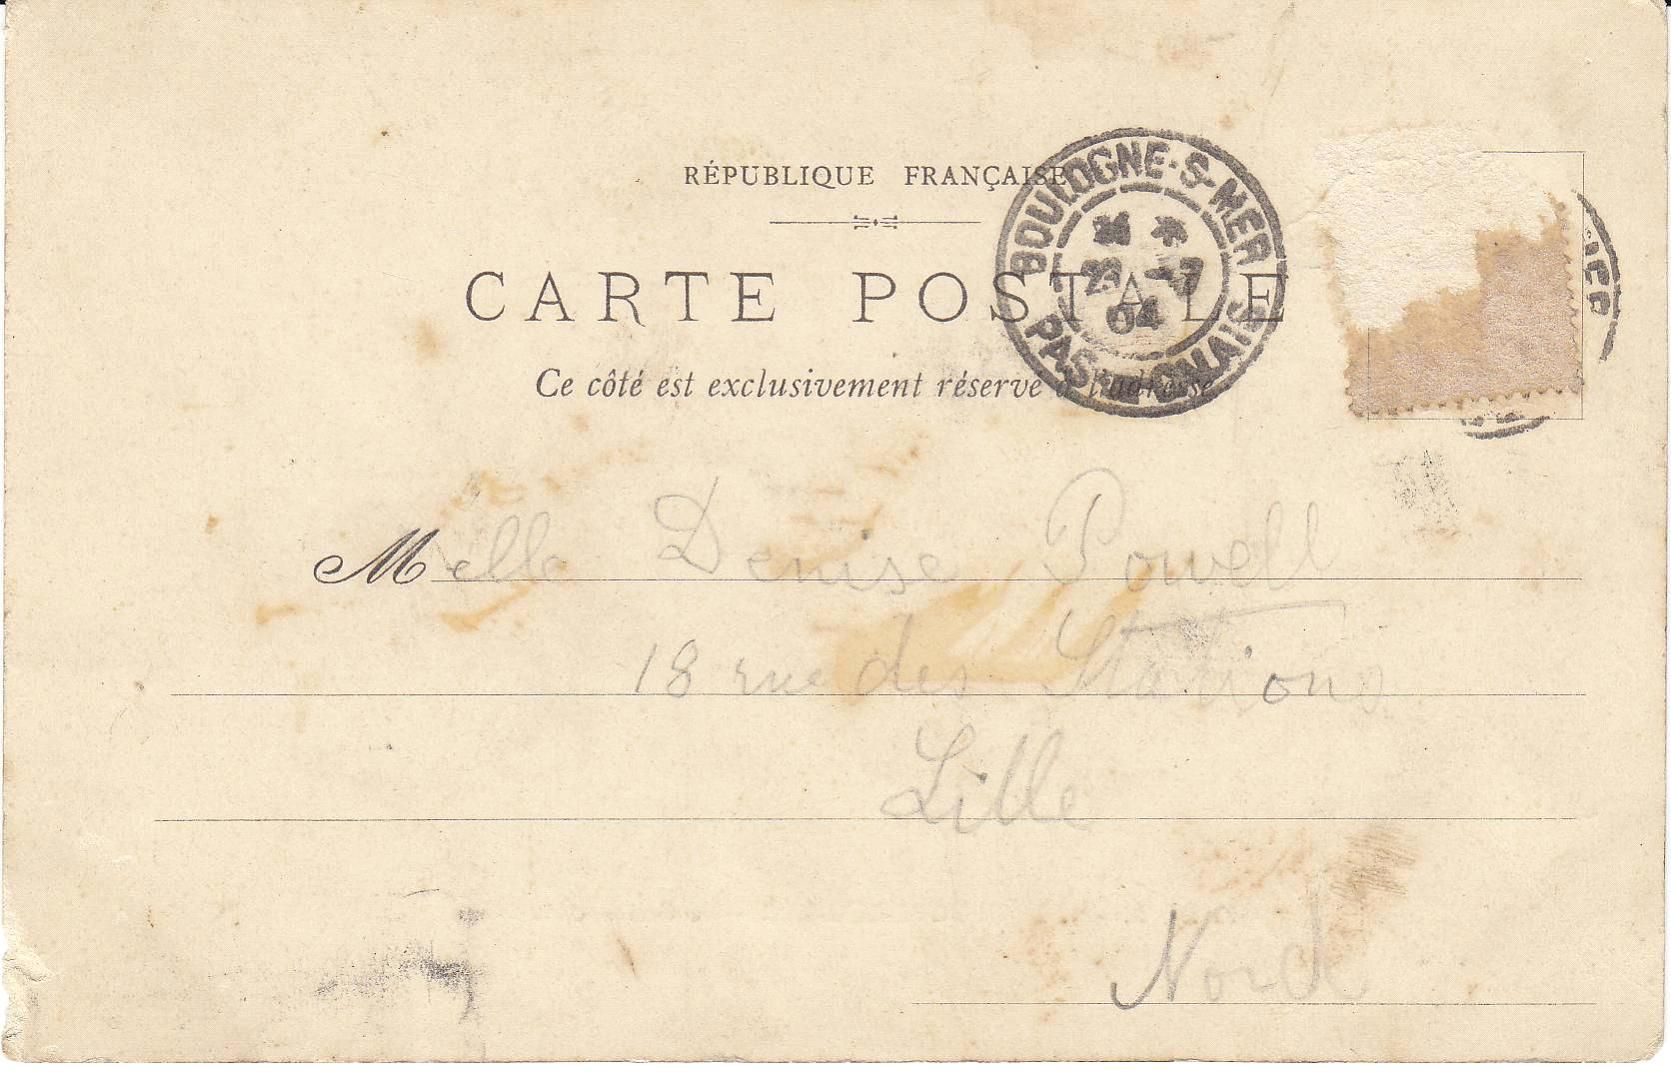 RÉPUBLIQUE FRANÇAISE
CARTE POSTALE
Ce côté est exclusivement réservé à l'adresse
BOULOGNE-S-MER
04
PAS-DE-CALAIS
Melle Denise Powell
18 rue des Stations
Lille
Nord